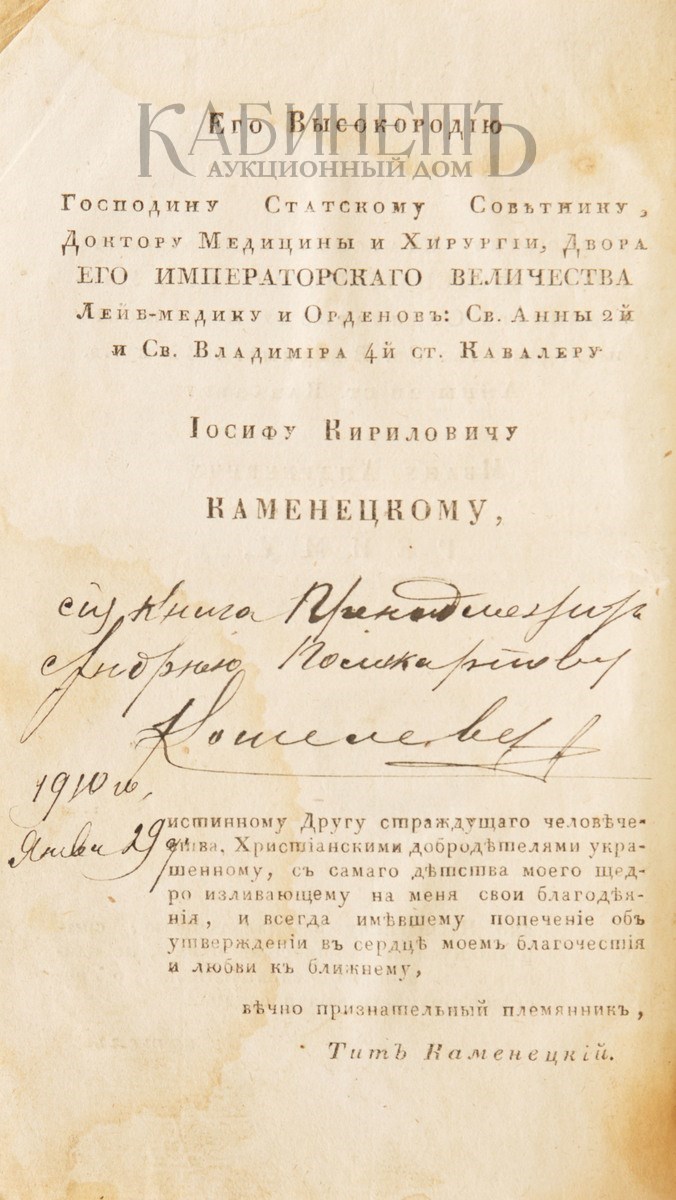 КАБИНЕТЪ
АУКЦИОННЫЙ ДОМ
Его Высокородію
Господину Статскому Совѣтнику,
Доктору Медицины и Хирургіи, Двора
ЕГО ИМПЕРАТОРСКАГО ВЕЛИЧЕСТВА
Лейб-медику и Орденовъ: Св. Анны 2й
и Св. Владиміра 4й ст. Кавалеру
Іосифу Кириловичу
КАМЕНЕЦКОМУ,
сія Книга Принадлежитъ
Андрѣю Поликарпову
Кошелеву
1910 го,
Янва 29
истинному Другу страждущаго человѣче-
ства, Христіанскими добродѣтелями укра-
шенному, съ самаго дѣтства моего щед-
ро изливающему на меня свои благодѣя-
нія, и всегда имѣвшему попеченіе объ
утвержденіи въ сердцѣ моемъ благочестія
и любви къ ближнему,
вѣчно признательный племянникъ,
Титъ Каменецкій.